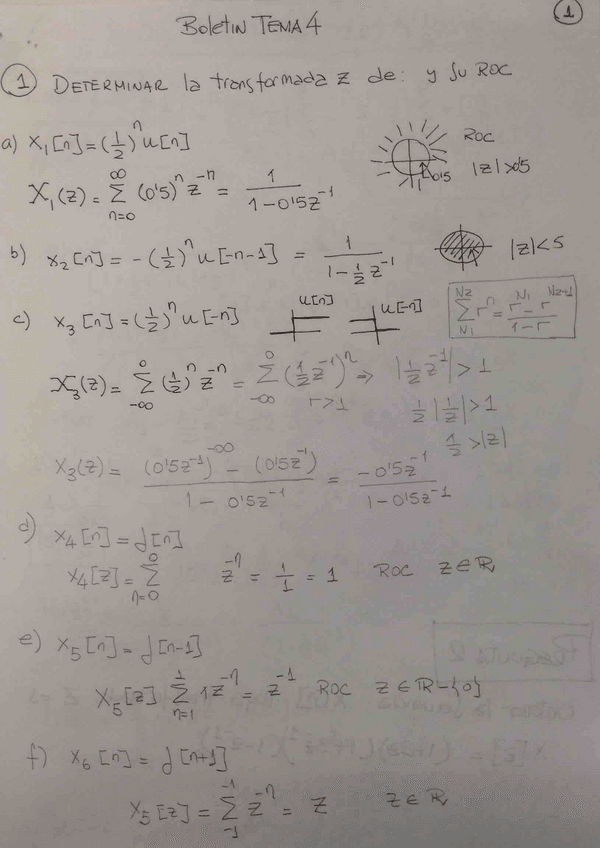 1
Boletin TEMA 4
1 DETERMINAR la transformada Z de: y su ROC
a) X1[n] = (1/2)^n u[n]
ROC
0'5 |z|>0'5
X1(z) = ∑_{n=0}^{∞} (0'5)^n z^-n = 1/(1-0'5z^-1)
b) x2[n] = -(1/2)^n u[-n-1] = 1/(1-1/2 z^-1) |z|<5
c) x3[n] = (1/2)^n u[-n] u[n] u[-n]
∑_{N1}^{N2} r^n = (r^N1 - r^(N2+1))/(1-r)
X3(z) = ∑_{-∞}^{0} (1/2)^n z^-n = ∑_{-∞}^{0} (1/2 z^-1)^n ⇒ |1/2 z^-1| > 1
r>1
1/2 |1/z| > 1
1/2 > |z|
X3(z) = ((0'5z^-1)^-∞ - (0'5z^-1))/(1-0'5z^-1) = -0'5z^-1/(1-0'5z^-1)
d) x4[n] = δ[n]
x4[z] = ∑_{n=0}^{0} z^-n = 1/1 = 1 ROC z∈ℝ
e) x5[n] = δ[n-1]
X5[z] ∑_{n=1}^{1} 1z^-n = z^-1 ROC z∈ℝ-{0}
f) x6[n] = δ[n+1]
X5[z] = ∑_{-1}^{-1} z^-n = z z∈ℝ